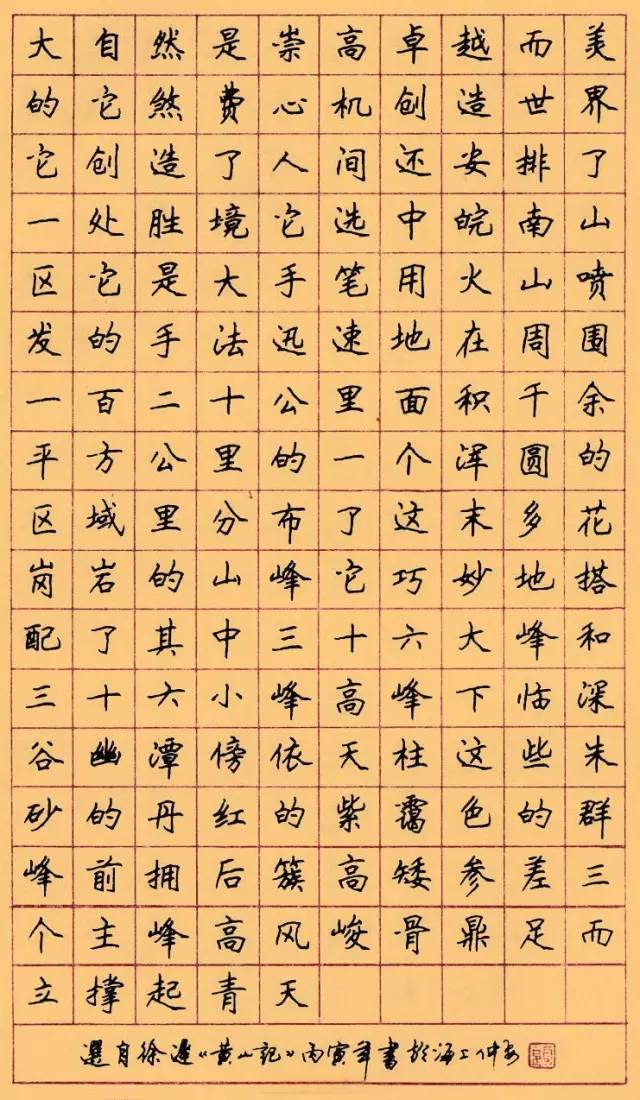 大自然是崇高卓越而美
的它煞费心机创造世界
它创造了人间还安排了
一处胜境它选中皖南山
区它是大手笔用火山喷
发的手法迅速地在周围
一百二十公里面积千余
平方公里的一个浑圆的
区域里分布了这末多花
岗岩的山峰它巧妙地搭
配了其中三十六大峰和
三十六小峰高峰下临深
谷幽潭傍依天柱这些朱
砂的丹红的紫霭色的群
峰前拥后簇高矮参差三
个主峰高风峻骨鼎足而
立撑起青天
選自徐迟《黄山記》丙寅年書於海上